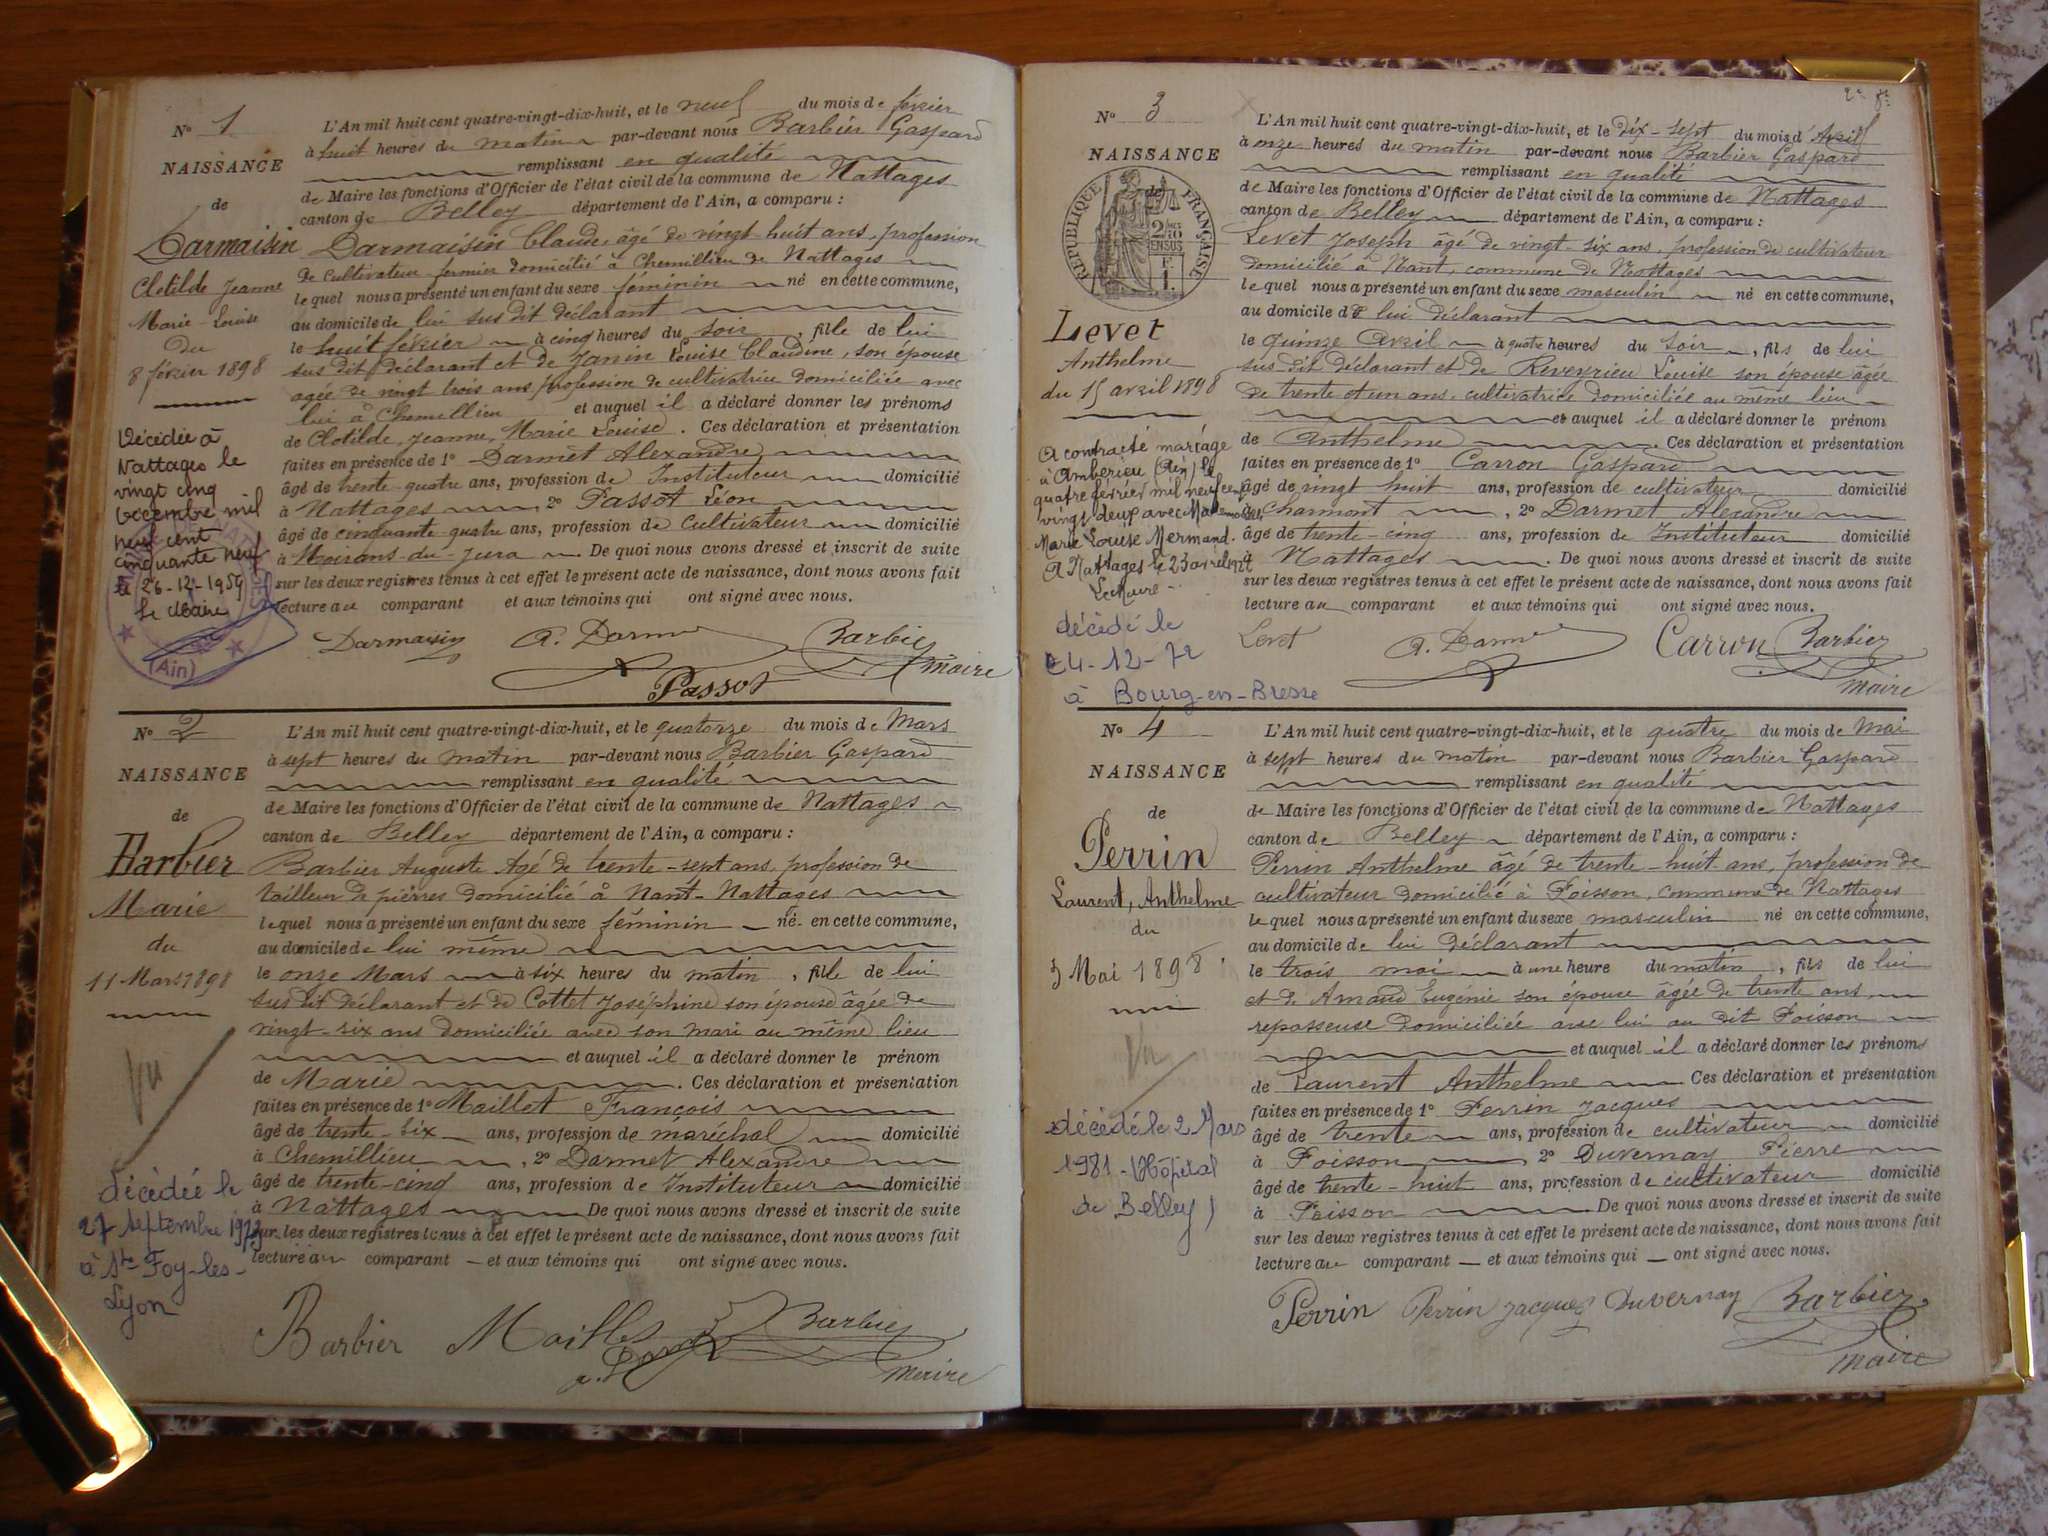 N° 1
NAISSANCE
de
Darmaisin
Clotilde Jeanne
Marie-Louise
du
8 février 1898
Décédée à
Nattages le
vingt cinq
Décembre mil
neuf cent
cinquante neuf
le 26-12-1959
Le Maire
(Ain)
L'An mil huit cent quatre-vingt-dix-huit, et le neuf du mois de février
à huit heures du matin par-devant nous Barbier Gaspard
remplissant en qualité
de Maire les fonctions d'Officier de l'état civil de la commune de Nattages
canton de Belley département de l'Ain, a comparu :
Darmaisin Claude, âgé de vingt-huit ans, profession
de cultivateur fermier domicilié à Chemillieu de Nattages
lequel nous a présenté un enfant du sexe féminin né en cette commune,
au domicile de lui sus dit déclarant
le huit février à cinq heures du soir, fille de lui
sus dit déclarant et de Janin Louise Claudine, son épouse
agée de vingt trois ans profession de cultivatrice domiciliée avec
lui à Chemillieu et auquel il a déclaré donner les prénoms
de Clotilde, Jeanne, Marie Louise. Ces déclaration et présentation
faites en présence de 1° Darmet Alexandre
âgé de trente-quatre ans, profession de Instituteur domicilié
à Nattages, 2° Passot Léon
âgé de cinquante quatre ans, profession de Cultivateur domicilié
à Moirans-du-Jura. De quoi nous avons dressé et inscrit de suite
sur les deux registres tenus à cet effet le présent acte de naissance, dont nous avons fait
lecture au comparant et aux témoins qui ont signé avec nous.
Darmaisin A. Darmet Barbier
maire
Passot
N° 2
NAISSANCE
de
Barbier
Marie
du
11 Mars 1898
Vu
décédée le
27 Septembre 1973
à Ste Foy-les-
Lyon
L'An mil huit cent quatre-vingt-dix-huit, et le quatorze du mois de Mars
à sept heures du matin par-devant nous Barbier Gaspard
remplissant en qualité
de Maire les fonctions d'Officier de l'état civil de la commune de Nattages
canton de Belley département de l'Ain, a comparu :
Barbier Auguste Agé de trente-sept ans, profession de
tailleur de pierres domicilié à Nant-Nattages
lequel nous a présenté un enfant du sexe féminin né en cette commune,
au domicile de lui même
le onze Mars à six heures du matin, fille de lui
sus dit déclarant et de Cottet Joséphine son épouse âgée de
vingt-six ans domiciliée avec son mari au même lieu
et auquel il a déclaré donner le prénom
de Marie. Ces déclaration et présentation
faites en présence de 1° Maillet François
âgé de trente-six ans, profession de maréchal domicilié
à Chemillieu, 2° Darmet Alexandre
âgé de trente-cinq ans, profession de Instituteur domicilié
à Nattages De quoi nous avons dressé et inscrit de suite
sur les deux registres tenus à cet effet le présent acte de naissance, dont nous avons fait
lecture au comparant et aux témoins qui ont signé avec nous.
Barbier Maillet Barbier
maire
N° 3
NAISSANCE
de
RÉPUBLIQUE FRANÇAISE
Levet
Anthelme
du 15 avril 1898
A contracté mariage
à Ambérieu (Ain) le
quatre février mil neuf cent
vingt-deux avec Mademoiselle
Marie Louise Mermand.
A Nattages le 23 avril 1922
Le Maire
décédé le
24-12-72
à Bourg-en-Bresse
L'An mil huit cent quatre-vingt-dix-huit, et le dix-sept du mois d'Avril
à onze heures du matin par-devant nous Barbier Gaspard
remplissant en qualité
de Maire les fonctions d'Officier de l'état civil de la commune de Nattages
canton de Belley département de l'Ain, a comparu :
Levet Joseph âgé de vingt-six ans, profession de cultivateur
domicilié à Nant, commune de Nattages
lequel nous a présenté un enfant du sexe masculin né en cette commune,
au domicile de lui déclarant
le quinze Avril à quatre heures du soir, fils de lui
sus dit déclarant et de Reveyrieu Louise son épouse âgée
de trente et un ans, cultivatrice domiciliée au même lieu
et auquel il a déclaré donner le prénom
de Anthelme Ces déclaration et présentation
faites en présence de 1° Carron Gaspard
âgé de vingt huit ans, profession de cultivateur domicilié
à Charmont, 2° Darmet Alexandre
âgé de trente-cinq ans, profession de Instituteur domicilié
à Nattages. De quoi nous avons dressé et inscrit de suite
sur les deux registres tenus à cet effet le présent acte de naissance, dont nous avons fait
lecture au comparant et aux témoins qui ont signé avec nous.
Levet A. Darmet Carron Barbier
maire
N° 4
NAISSANCE
de
Perrin
Laurent, Anthelme
du
3 Mai 1898
Vu
décédé le 2 Mars
1981 - (Hôpital
de Belley)
L'An mil huit cent quatre-vingt-dix-huit, et le quatre du mois de Mai
à sept heures du matin par-devant nous Barbier Gaspard
remplissant en qualité
de Maire les fonctions d'Officier de l'état civil de la commune de Nattages
canton de Belley département de l'Ain, a comparu :
Perrin Anthelme âgé de trente-huit ans, profession de
cultivateur domicilié à Poisson, commune de Nattages
lequel nous a présenté un enfant du sexe masculin né en cette commune,
au domicile de lui déclarant
le trois mai à une heure du matin, fils de lui
et de Arnaud Eugénie son épouse âgée de trente ans,
repasseuse domiciliée avec lui au dit Poisson
et auquel il a déclaré donner les prénoms
de Laurent Anthelme Ces déclaration et présentation
faites en présence de 1° Perrin Jacques
âgé de trente ans, profession de cultivateur domicilié
à Poisson 2° Duvernay Pierre
âgé de trente-huit ans, profession de cultivateur domicilié
à Poisson De quoi nous avons dressé et inscrit de suite
sur les deux registres tenus à cet effet le présent acte de naissance, dont nous avons fait
lecture au comparant et aux témoins qui ont signé avec nous.
Perrin Perrin Jacques Duvernay Barbier
maire